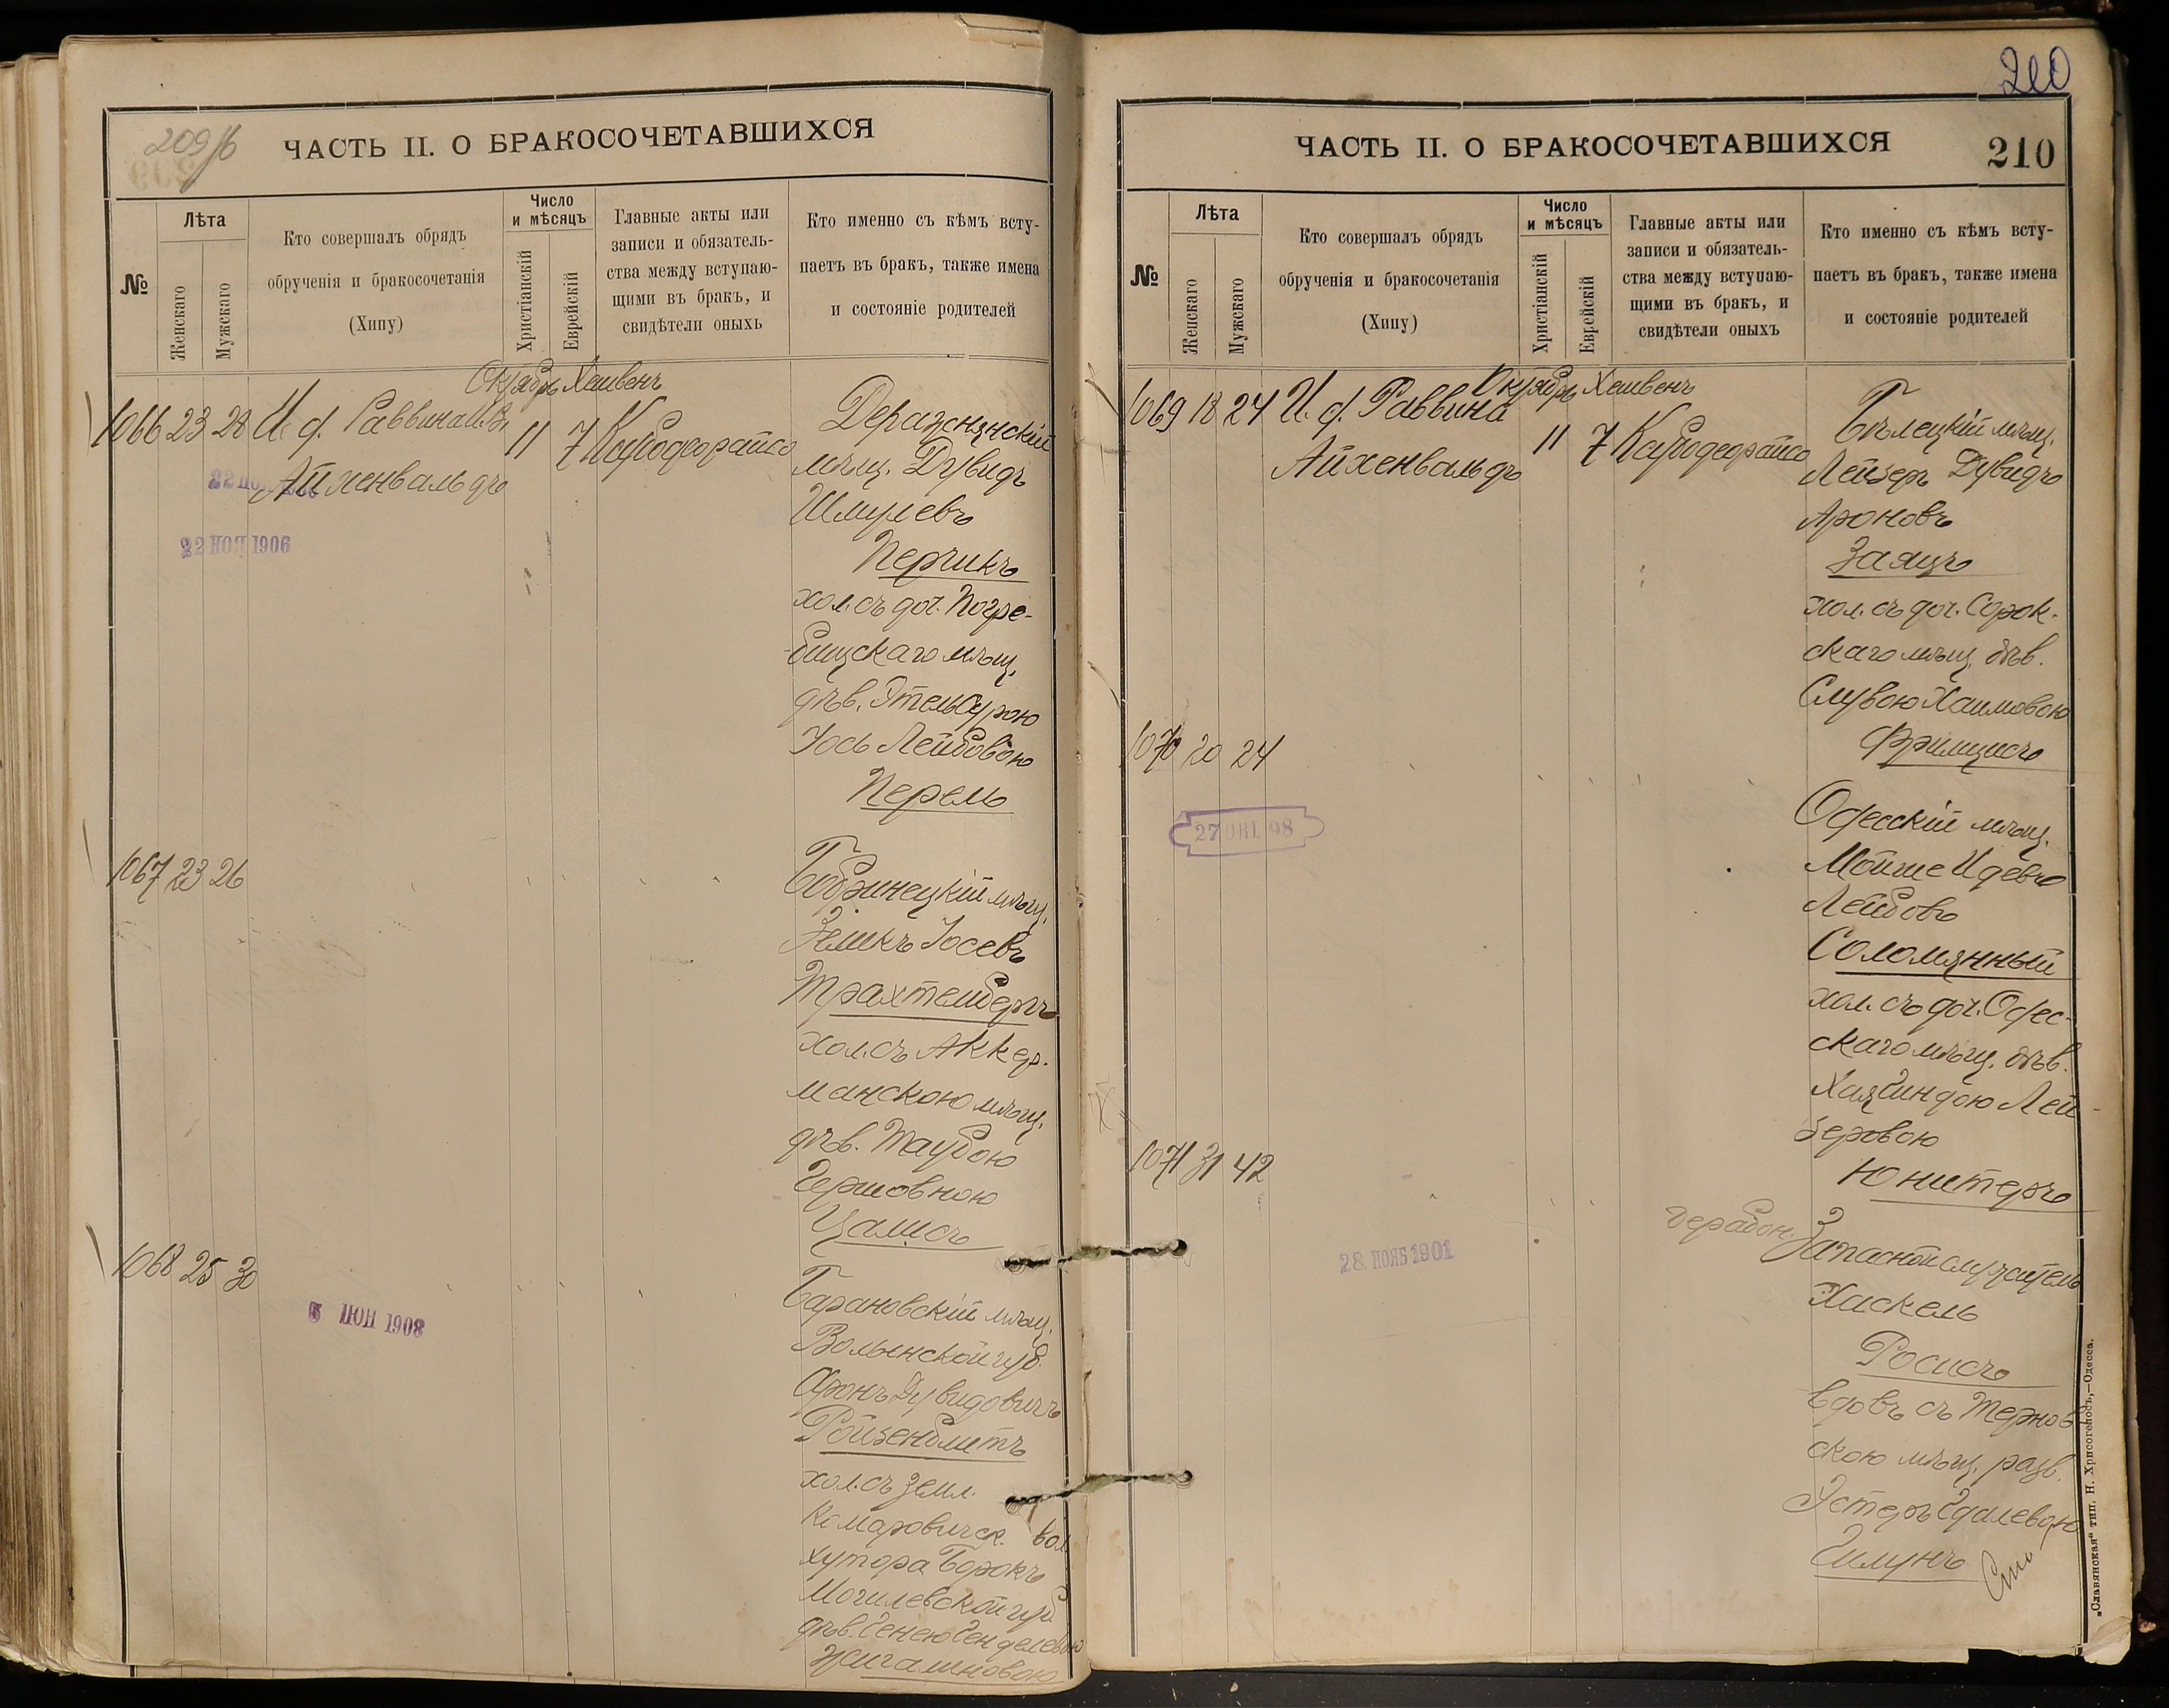 209/б
ЧАСТЬ II. О БРАКОСОЧЕТАВШИХСЯ
№
Лѣта
Женскаго
Мужскаго
Кто совершалъ обрядъ
обрученія и бракосочетанія
(Хипу)
Число
и мѣсяцъ
Христіанскій
Еврейскій
Главные акты или
записи и обязатель-
ства между вступаю-
щими въ бракъ, и
свидѣтели оныхъ
Кто именно съ кѣмъ всту-
паетъ въ бракъ, также имена
и состояніе родителей
Октябрь Хешвенъ
1066 23 28 И. д. Раввина
Айхенвальдъ
11 7
22 НОЯ 1906
Деражнянскій
мѣщ. Дувидъ
Шмулевъ
Перчикъ
хол. съ доч. Погре-
бищскаго мѣщ.
дѣв. Этель Сурою
Іось Лейбовою
Перель
1067 23 26
Бобринецкій мѣщ.
Зейликъ Іосевъ
Трахтенбергъ
хол. съ Аккер-
манскою мѣщ.
дѣв. Таубою
Гершовною
Цалисъ
1068 25 30
5 ІЮН 1908
Барановскій мѣщ.
Волынской губ.
Аронъ Дувидовичъ
Ройзенблитъ
хол. съ земл.
Комаровичск. вол.
хутора Борокъ
Могилевской губ.
дѣв. Генею Генделевою
Жигалиновою
210
ЧАСТЬ II. О БРАКОСОЧЕТАВШИХСЯ
210
№
Лѣта
Женскаго
Мужскаго
Кто совершалъ обрядъ
обрученія и бракосочетанія
(Хипу)
Число
и мѣсяцъ
Христіанскій
Еврейскій
Главные акты или
записи и обязатель-
ства между вступаю-
щими въ бракъ, и
свидѣтели оныхъ
Кто именно съ кѣмъ всту-
паетъ въ бракъ, также имена
и состояніе родителей
Октябрь Хешвенъ
1069 18 24 И. д. Раввина
Айхенвальдъ
11 7
Бѣлецкій мѣщ.
Лейзеръ Дувидъ
Ароновъ
Заяцъ
хол. съ доч. Сорок-
скаго мѣщ. дѣв.
Слувою Хаимовою
Фрилицисъ
1070 20 24
27 ОКТ. 98
Одесскій мѣщ.
Мойше Идевъ
Лейбовъ
Соломянный
хол. съ доч. Одес-
скаго мѣщ. дѣв.
Хая Гиндою Лей-
зеровою
Юнитеръ
1071 31 42
28. НОЯБ 1901
Запасной служитель
Хаскель
Росисъ
вдовъ съ Тернов-
скою мѣщ. разв.
Эстеръ Гдалевою
Гилунъ
„Славянская“ тип. Н. Хрисогелосъ,—Одесса.